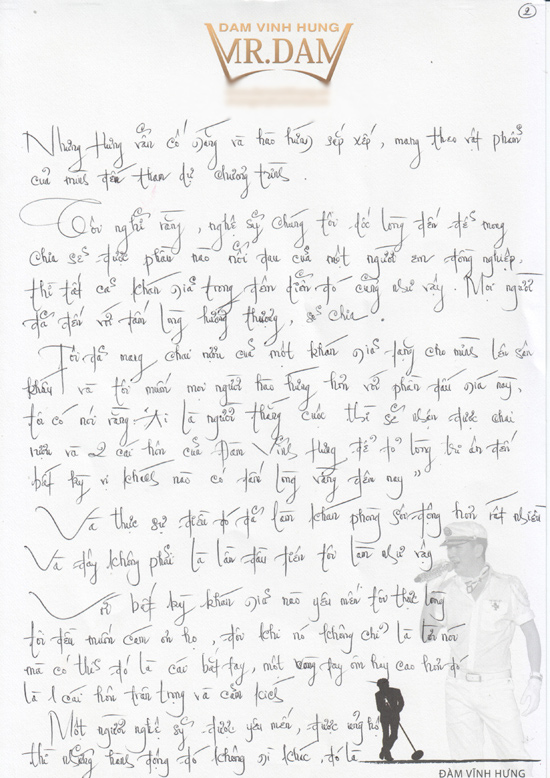 2
ĐAM VINH HUNG
MR.DAM
Nhưng Hưng vẫn cố gắng và hào hứng sắp xếp, mang theo vật phẩm
của mình đến tham dự chương trình.
Tôi nghĩ rằng, nghệ sỹ chúng tôi dốc lòng đến để mong
chia sẻ được phần nào nỗi đau của một người em đồng nghiệp,
thì tất cả khán giả trong đêm diễn đó cũng như vậy. Mọi người
đã đến với tấm lòng tương thương, sẻ chia.
Tôi đã mang chai rượu của một khán giả tặng cho mình lên sân
khấu và tôi muốn mọi người hào hứng hơn với phần đấu giá này,
tôi có nói rằng "Ai là người thắng cuộc thì sẽ nhận được chai
rượu và 2 cái hôn của Đàm Vĩnh Hưng để tỏ lòng tri ân đến
bất kỳ vị khách nào có tấm lòng vàng đêm nay"
Và thực sự điều đó đã làm khán phòng sôi động hơn rất nhiều
Và đây không phải là lần đầu tiên tôi làm như vậy
Với bất kỳ khán giả nào yêu mến tôi thực lòng
tôi đều muốn cảm ơn họ, đôi khi nó không chỉ là lời nói
mà có thể đó là cái bắt tay, một vòng tay ôm hay cao hơn đó
là 1 cái hôn trân trọng và cảm kích
Một người nghệ sỹ được yêu mến, được ủng hộ
thì những hành động đó không gì khác, đó là
ĐÀM VĨNH HƯNG